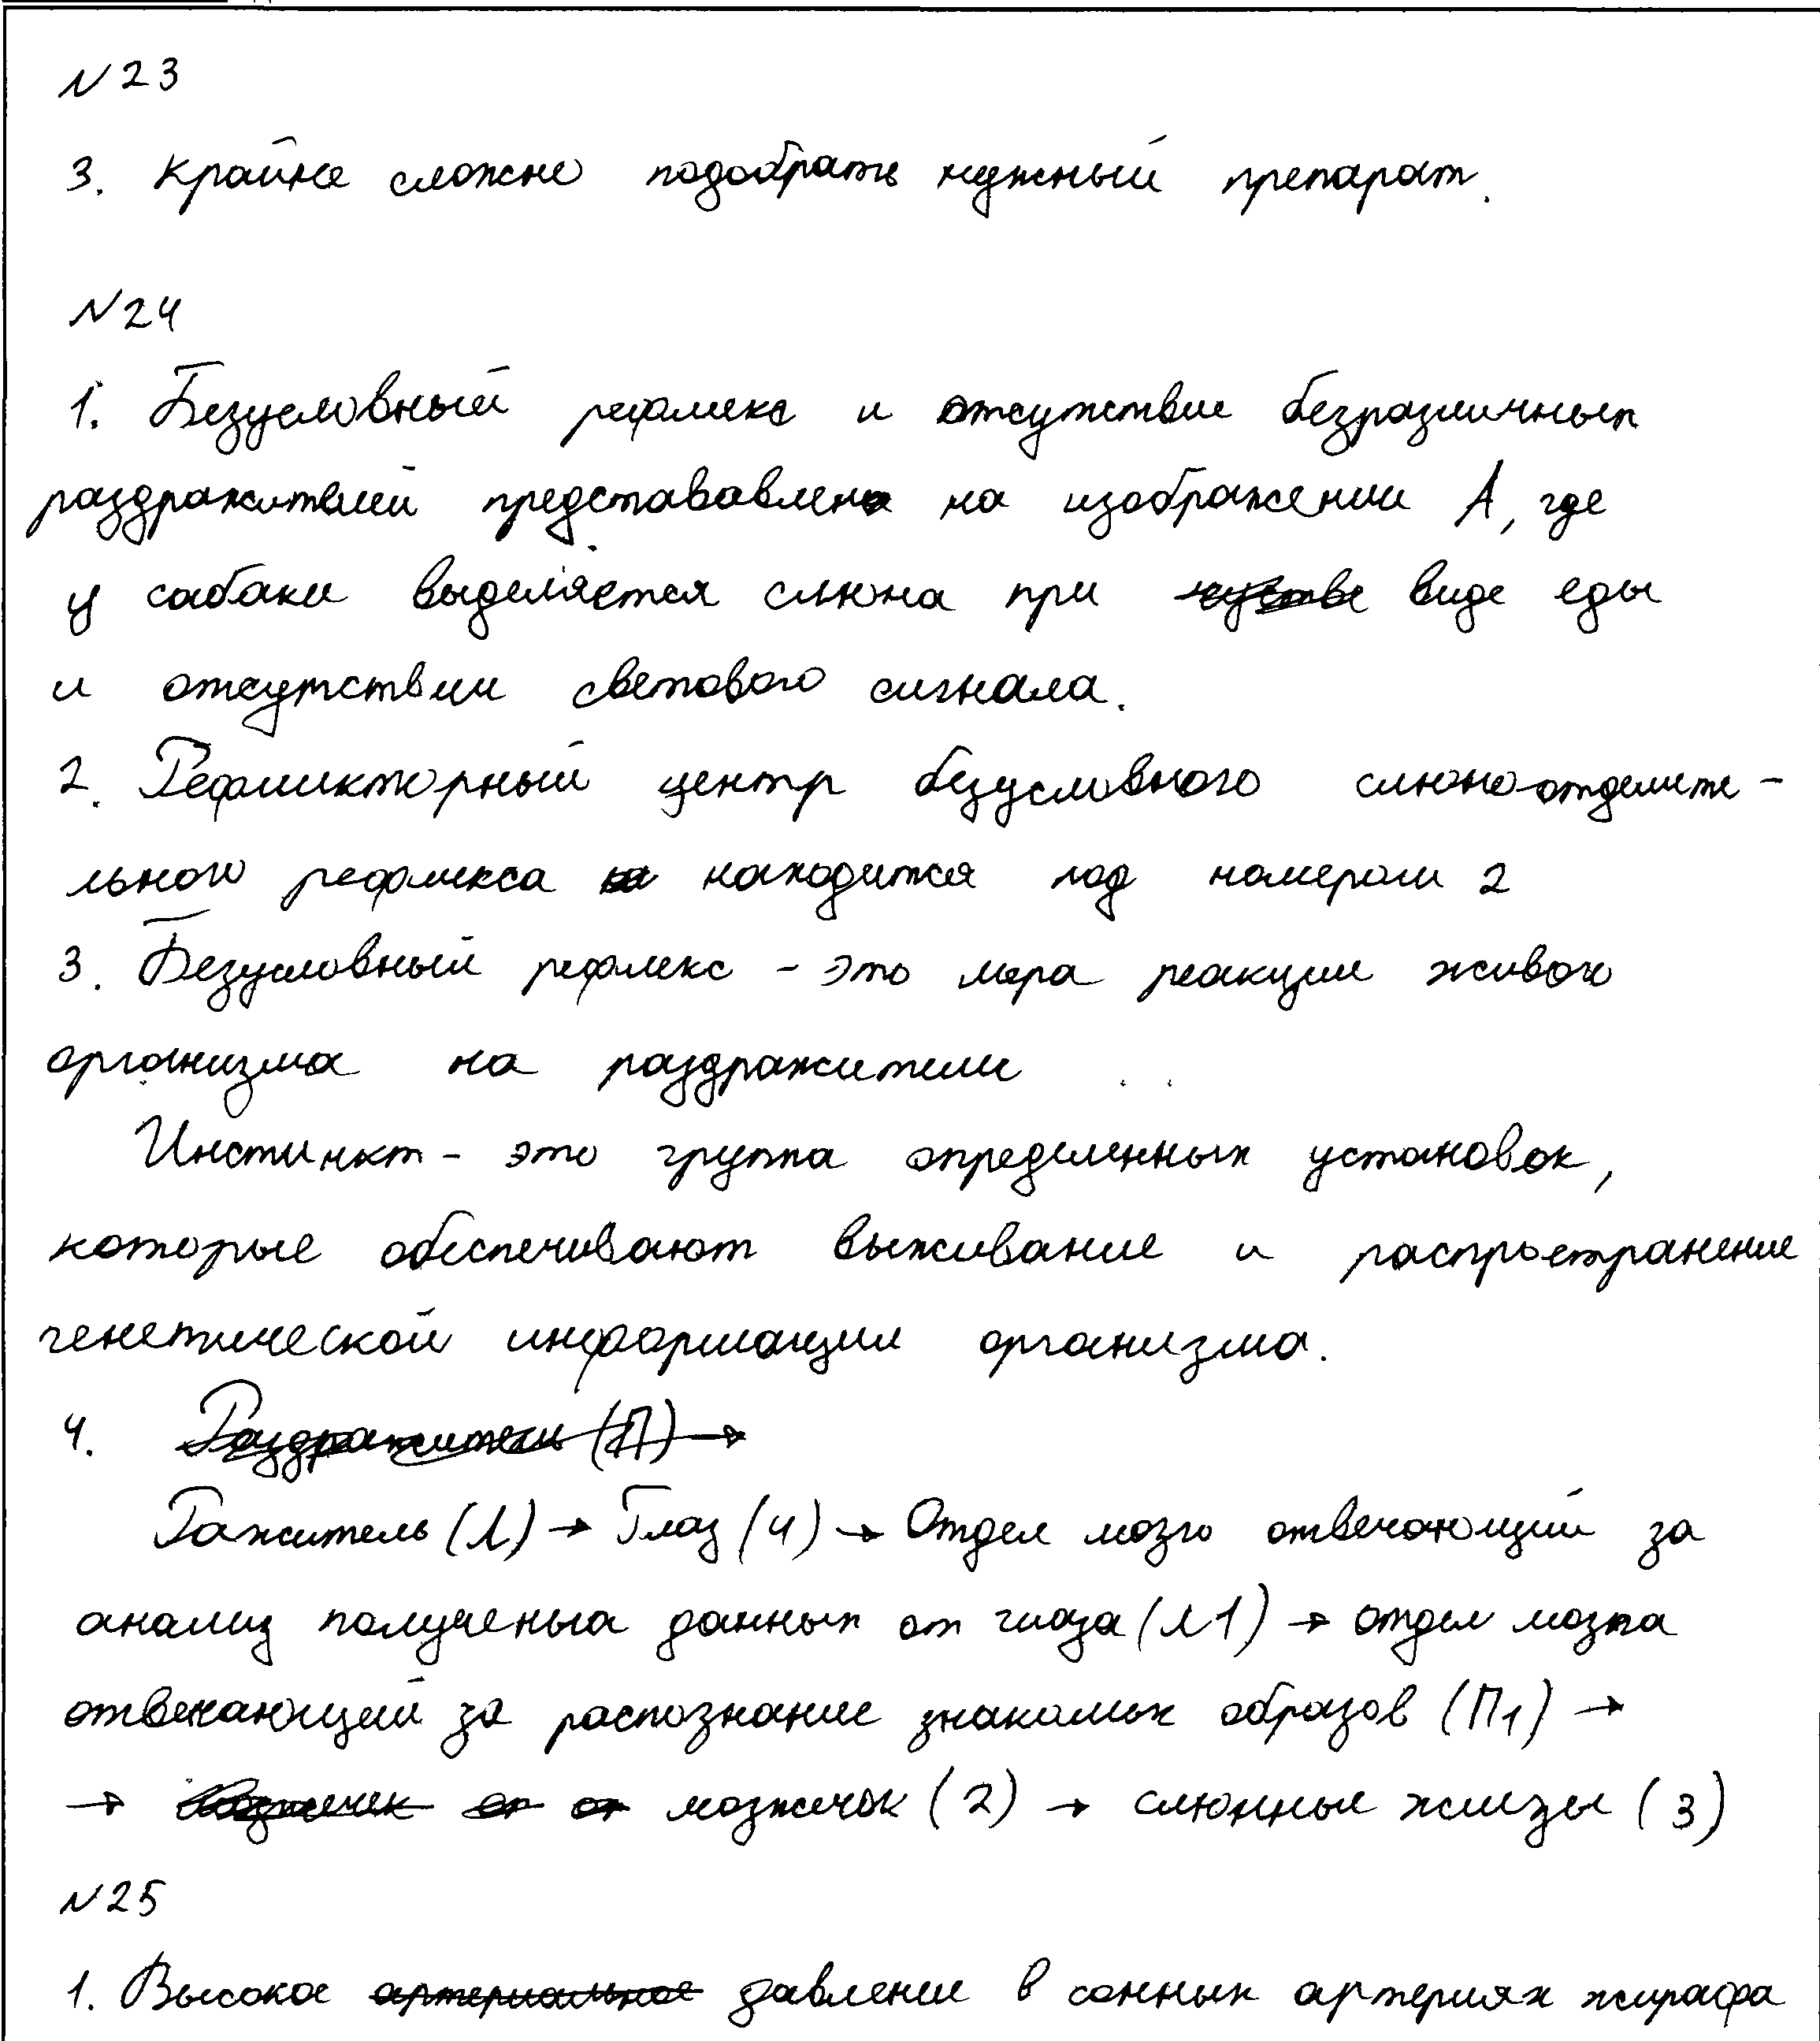 N23
3. Крайне сложно подобрать нужный препарат.
N24
1. Безусловный рефлекс и отсутствие безразличных
раздражителей представавлено на изображении А, где
у сабаки выделяется слюна при виде еды
и отсутствии светового сигнала.
2. Рефлекторный центр безусловного слюноотделите-
льного рефлекса находится под номером 2
3. Безусловный рефлекс - это мера реакции живого
организма на раздражители
Инстинкт - это группа определенных установок,
которые обеспечивают выживание и распространение
генетической информации организма.
4. Раздражители (П) →
Ражитель (Л) → Глаз (4) → Отдел мозга отвечающий за
анализ полученых данных от глаза (Л1) → отдел мозга
отвечающий за распознание знакомых образов (П1) →
→ мозжечок (2) → слюнные железы (3)
N25
1. Высокое артериальное давление в сонных артериях жирафа